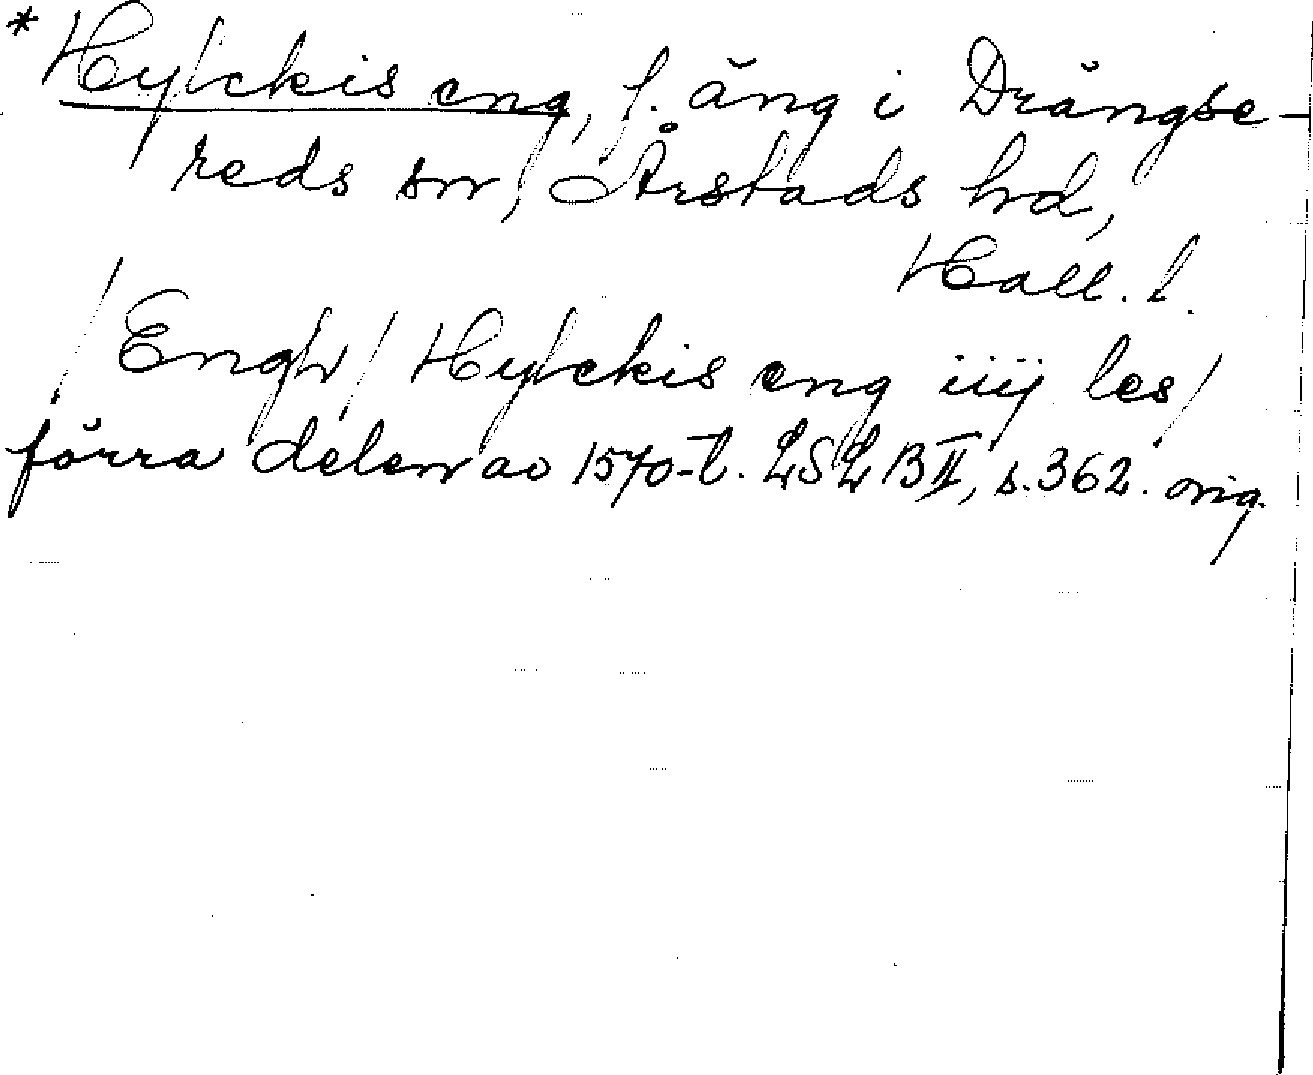 * Hylckis eng, f. äng i Drängse-
reds sn, Årstads hd,
Hall. l.
/Engh/ Hylckis eng iiij les/
förra delen av 1570-t. LSLB II, s. 362. orig.